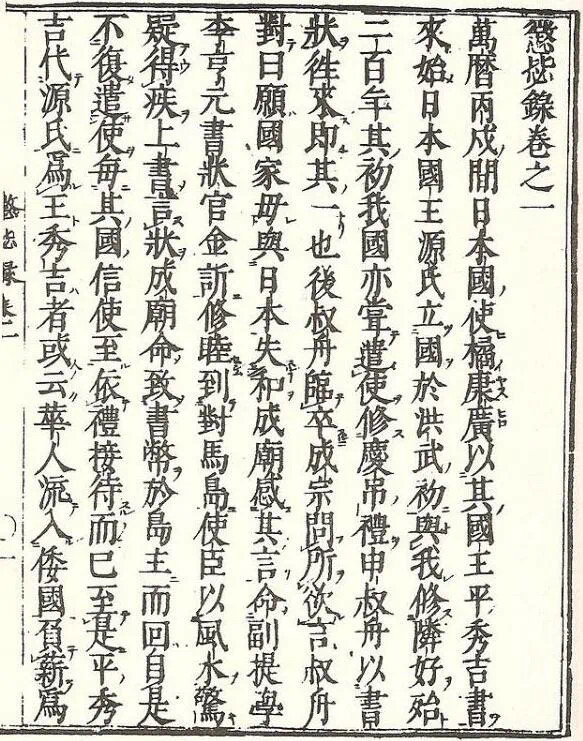 懲毖錄卷之一
萬曆丙戌間日本國使橘康廣以其國王平秀吉書
來始日本國王源氏立國於洪武初與我修隣好殆
二百年其初我國亦嘗遣使修慶吊禮申叔舟以書
狀往來即其一也後叔舟臨卒成宗問所欲言叔舟
對曰願國家毋與日本失和成廟感其言命副提學
李亨元書狀官金訢修睦到對馬島使臣以風水驚
疑得疾上書言狀成廟命致書幣於島主而回自是
不復遣使每其國信使至依禮接待而已至是平秀
吉代源氏爲王秀吉者或云華人流入倭國負薪爲